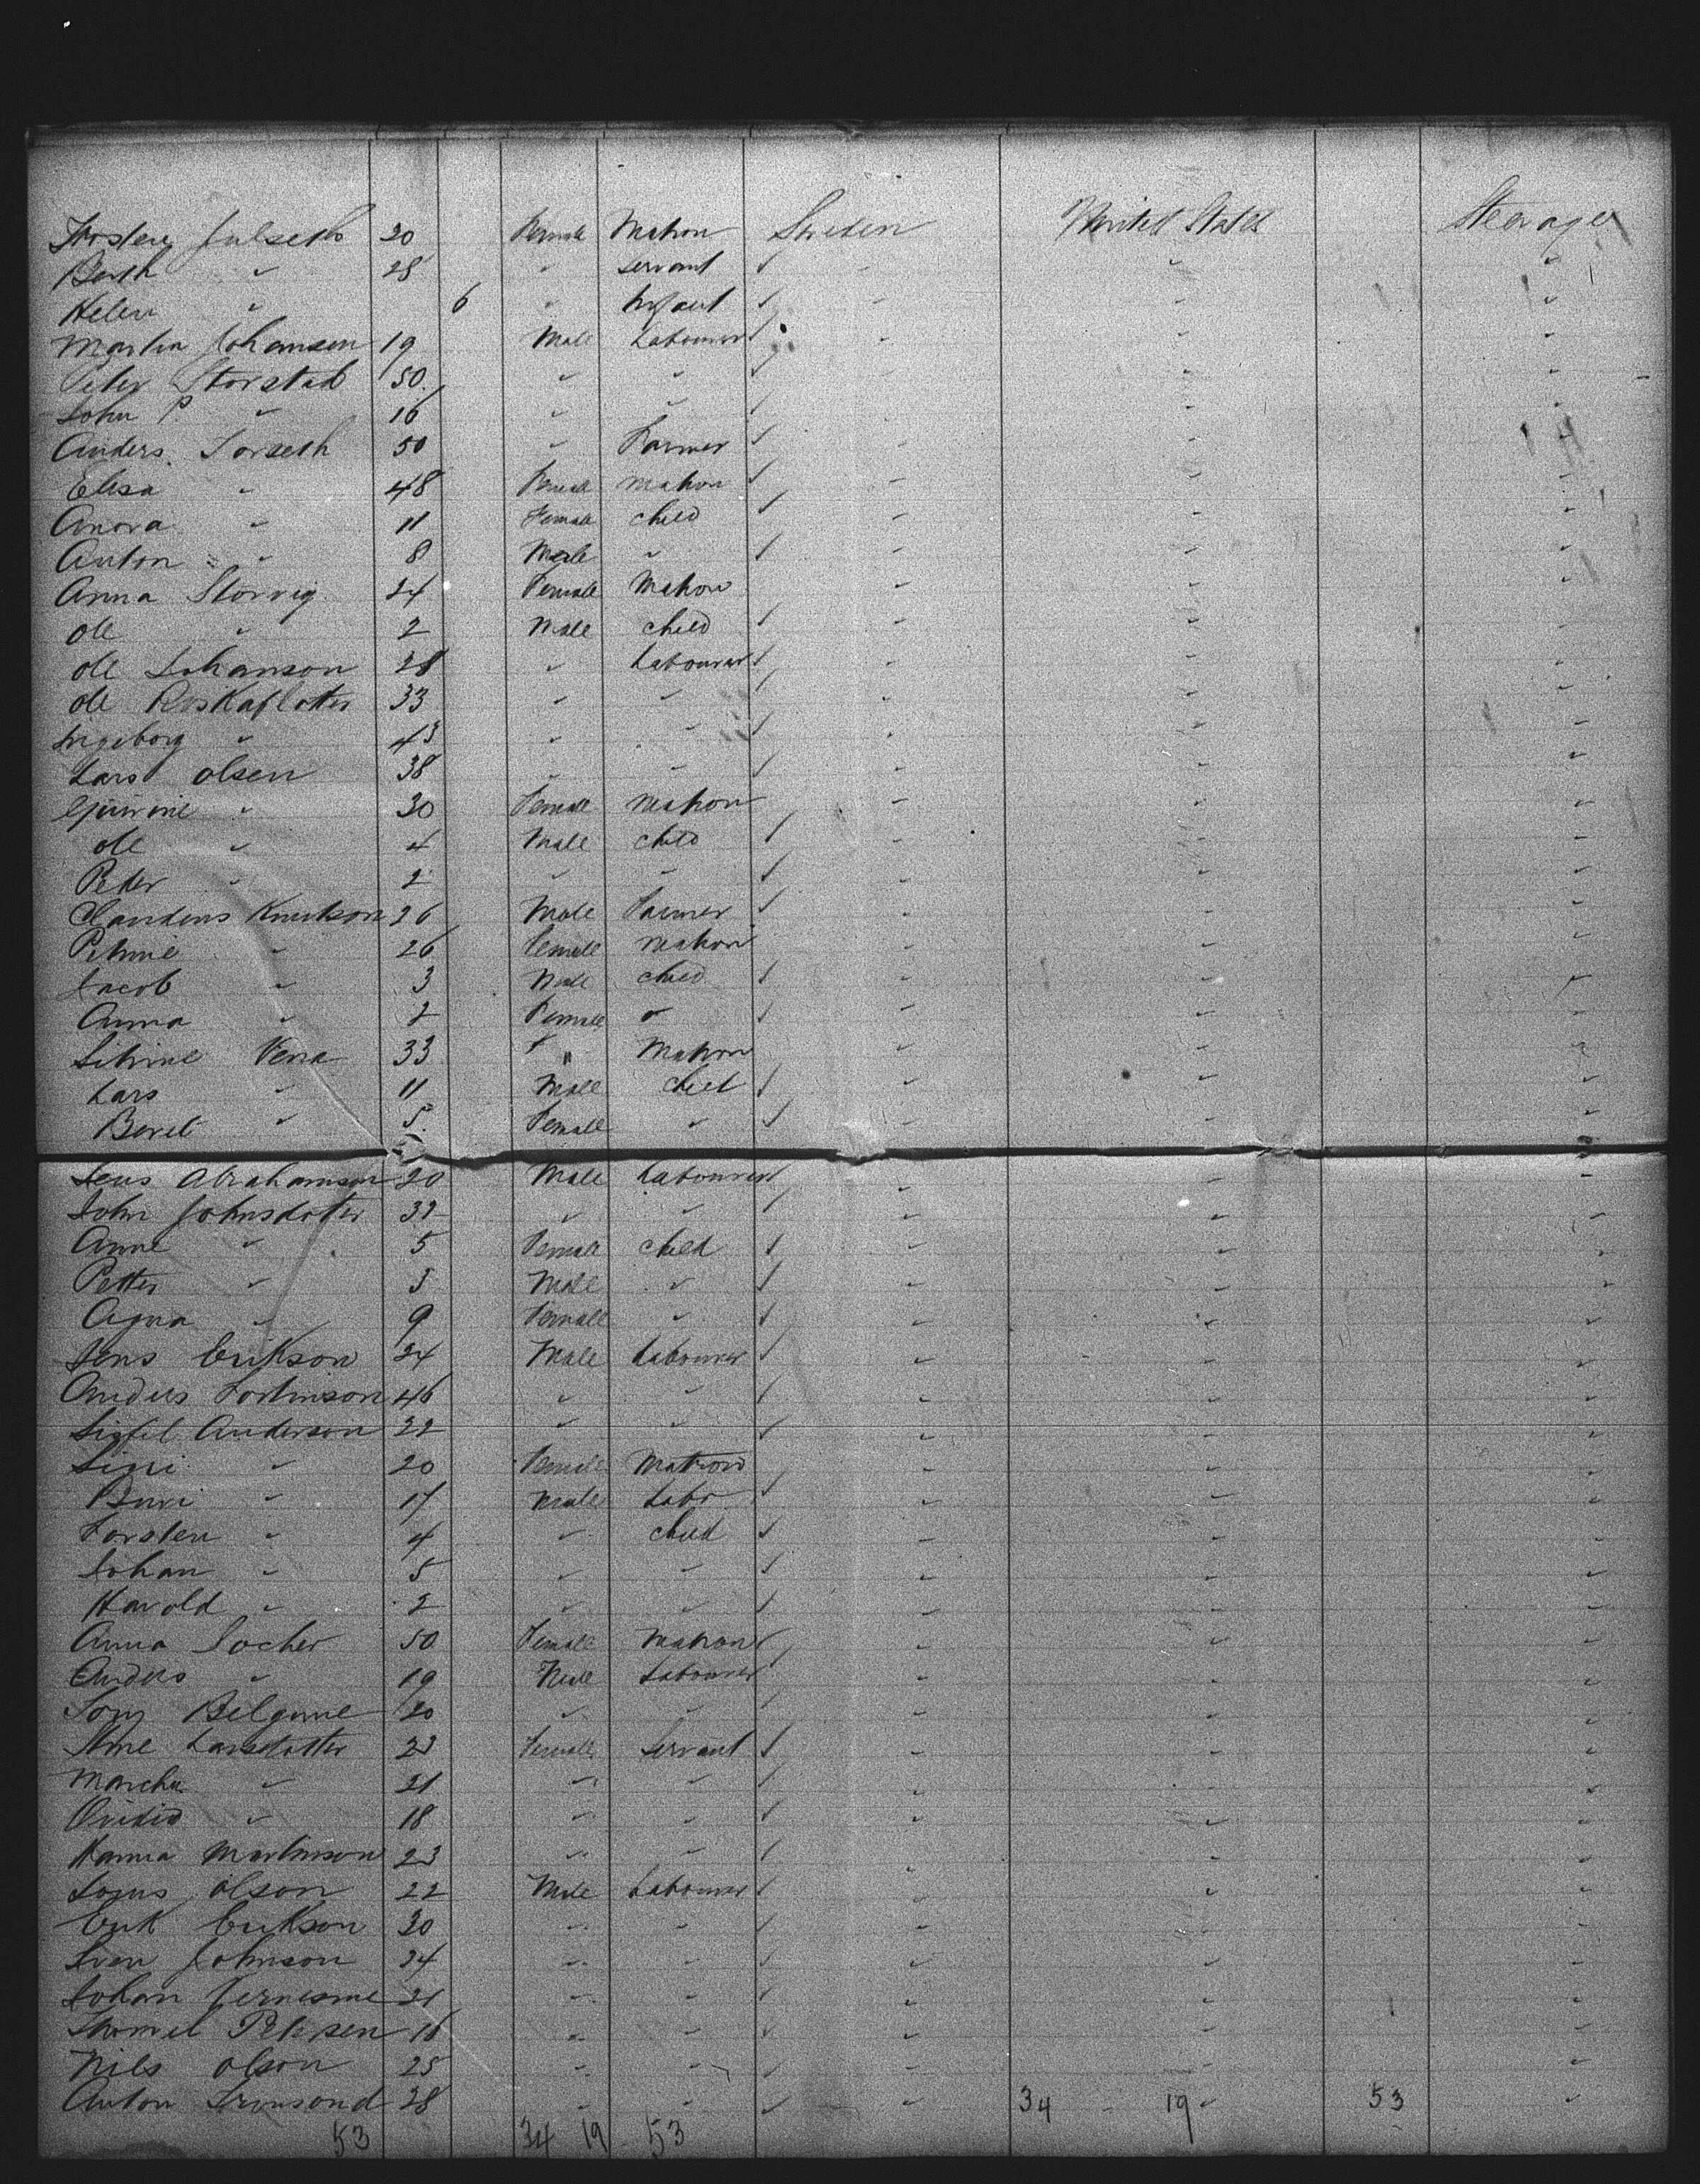 Julseth 20 Female Matron Sweden United States Steerage
Berth " 28 " Servant
Helen " 6 " Infant
Martin Johansen 19 Male Labourer
Peter Storstad 50 " "
John P. " 16 " "
Anders Torseth 50 " Farmer
Elisa " 48 Female Matron
Anora " 11 Female child
Anton " 8 Male "
Anna Storvig 24 Female Matron
Ole " 2 Male child
Ole Johanson 28 " Labourer
Ole 33 " "
Ingeborg " 43 " "
Lars Olsen 38 " "
" 30 Female Matron
Ole " 4 Male child
Peter " 2 " "
Knutson 26 Male Farmer
" 26 Female Matron
Jacob " 3 Male child
Anna " 2 Female "
33 " Matron
Lars " 11 Male child
Beret " 5 Female "
Jens Abrahamson 20 Male Labourer
John Johnsdotter 32 " "
Anne " 5 Female child
Petter " 3 Male "
" 9 Female "
Jens Erikson 24 Male Labourer
Anders 46 " "
Anderson 22 " "
" 20 Female Matron
" 17 Male Labr
Torsten " 4 " child
Johan " 5 " "
Harold " 2 " "
Anna Socher 50 Female Matron
Anders " 19 Male Labourer
20 " "
Larsdotter 23 Female Servant
" 21 " "
" 18 " "
Hanna Martinson 23 " "
Olson 22 Male Labourer
Erik Erikson 30 " "
Sven Johnson 24 " "
Johan 21 " "
Petersen 16 " "
Nils Olson 25 " "
Anton 28 " " 34 19 53
53 34 19 53